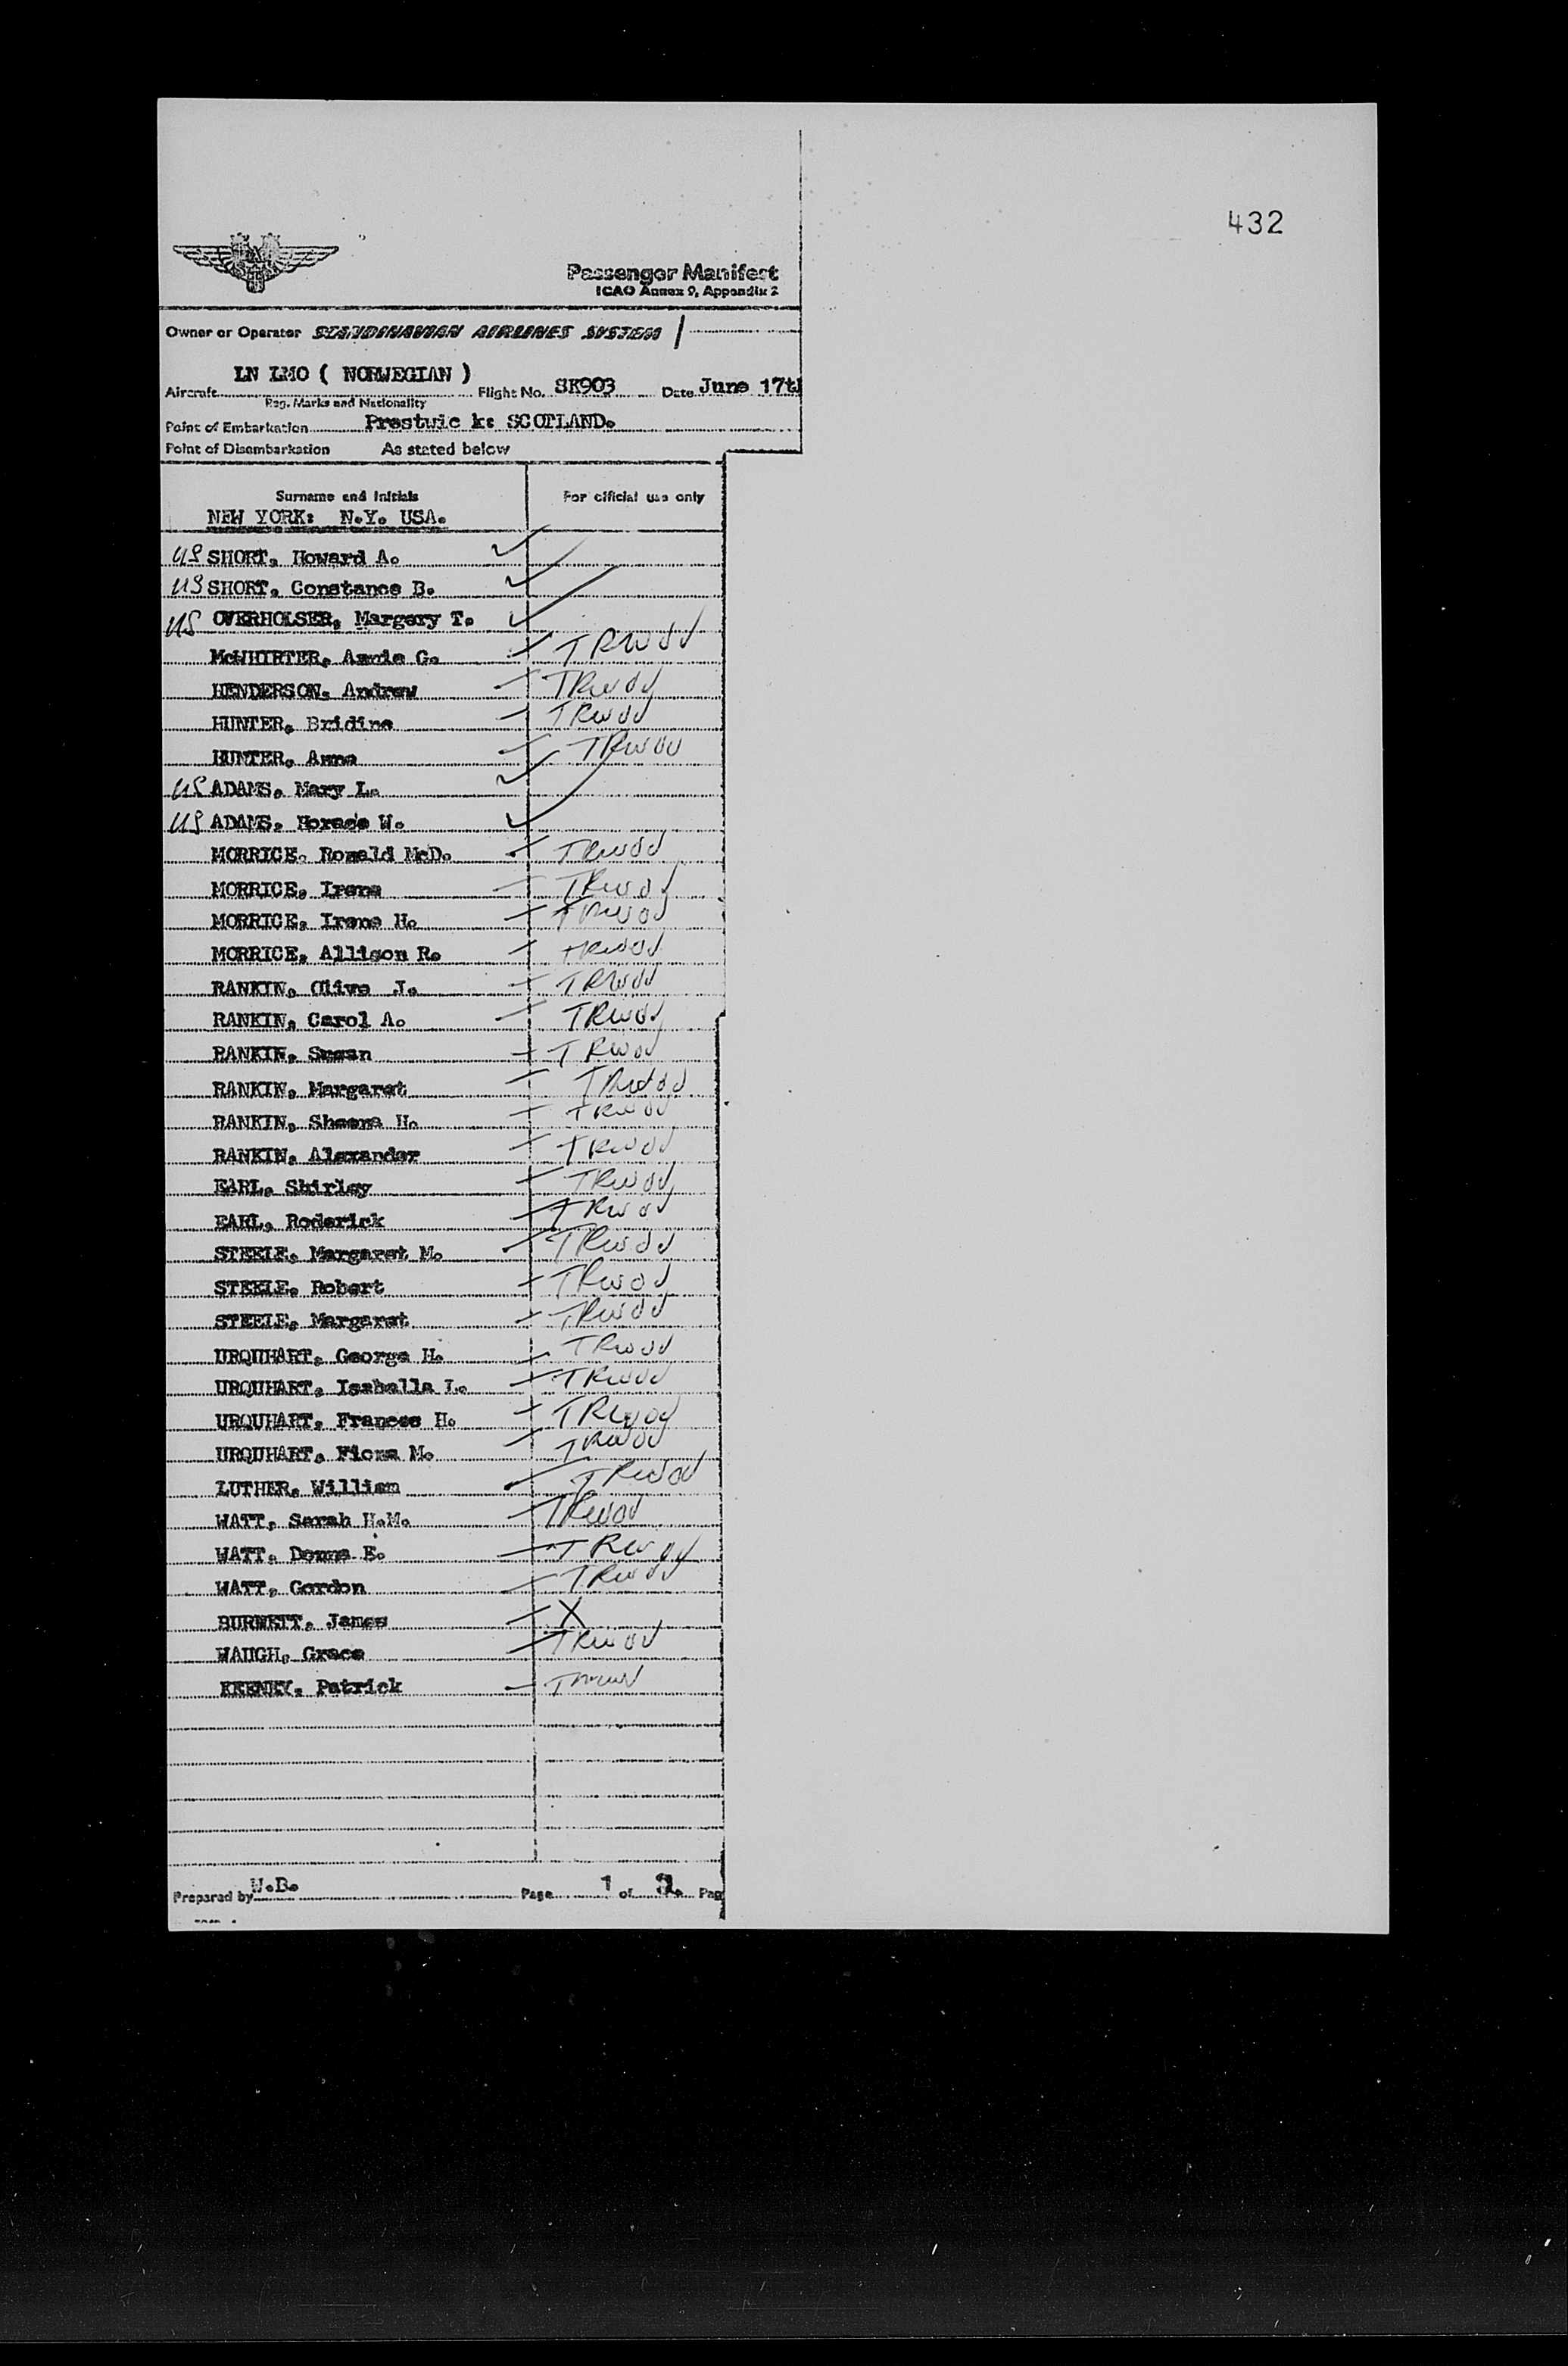 432
Passenger Manifest
ICAO Annex 9, Appendix 2
Owner or Operator SCANDINAVIAN AIRLINES SYSTEM
Aircraft LN LMO ( NORWEGIAN ) Flight No. SK903 Date June 17th
Reg. Marks and Nationality
Point of Embarkation Prestwic k: SCOTLAND.
Point of Disembarkation As stated below
Surname and Initials For official use only
NEW YORK: N.Y. USA.
US SHORT, Howard A.
US SHORT, Constance B.
US OVERHOLSER, Margery T.
McWHIRTER, Annie G. TRWOV
HENDERSON, Andrew TRWOV
HUNTER, Bridine TRWOV
HUNTER, Anna TRWOV
US ADAMS, Mary L.
US ADAMS, Horace W.
MORRICE, Ronald McD. TRWOV
MORRICE, Irene TRWOV
MORRICE, Irene H. TRWOV
MORRICE, Allison R. TRWOV
RANKIN, Olive J. TRWOV
RANKIN, Carol A. TRWOV
RANKIN, Susan TRWOV
RANKIN, Margaret TRWOV
RANKIN, Sheena H. TRWOV
RANKIN, Alexander TRWOV
EARL, Shirley TRWOV
EARL, Roderick TRWOV
STEELE, Margaret M. TRWOV
STEELE, Robert TRWOV
STEELE, Margaret TRWOV
URQUHART, George H. TRWOV
URQUHART, Isabella I. TRWOV
URQUHART, Frances H. TRWOV
URQUHART, Fiona M. TRWOV
LUTHER, William TRWOV
WATT, Sarah H.M. TRWOV
WATT, Donna E. TRWOV
WATT, Gordon TRWOV
BURNETT, James X
WAUGH, Grace TRWOV
KEENEY, Patrick
Prepared by W.B. Page 1 of 2. Pag